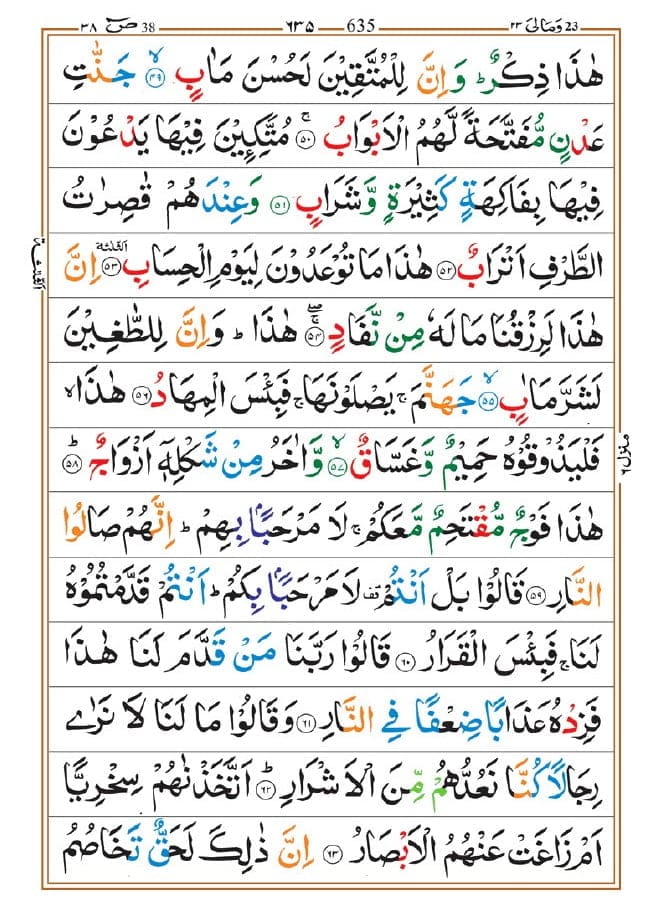 ٣٨ صٓ 38 ٦٣٥ 635 ٢٣ وَمَالِىَ 23
هٰذَا ذِكْرٌ ؕ وَاِنَّ لِلْمُتَّقِيْنَ لَحُسْنَ مَاٰبٍ ۙ‏﴿۴۹﴾ جَنّٰتِ
عَدْنٍ مُّفَتَّحَةً لَّهُمُ الْاَبْوَابُ‌ ۚ‏﴿۵۰﴾ مُتَّكِـِٕيْنَ فِيْهَا يَدْعُوْنَ
فِيْهَا بِفَاكِهَةٍ كَثِيْرَةٍ وَّشَرَابٍ‏﴿۵۱﴾ وَعِنْدَهُمْ قٰصِرٰتُ
الطَّرْفِ اَتْرَابٌ‏﴿۵۲﴾ هٰذَا مَا تُوْعَدُوْنَ لِيَوْمِ الْحِسَابِ‏﴿۵۳﴾ اِنَّ
هٰذَا لَرِزْقُنَا مَا لَهٗ مِنْ نَّفَادٍ ۚ ۖ‏﴿۵۴﴾ هٰذَا‌ ؕ وَاِنَّ لِلطّٰغِيْنَ
لَشَرَّ مَاٰبٍ ۙ‏﴿۵۵﴾ جَهَنَّمَ‌ ۚ يَصْلَوْنَهَا‌ ۚ فَبِئْسَ الْمِهَادُ‏﴿۵۶﴾ هٰذَا ۙ
فَلْيَذُوْقُوْهُ حَمِيْمٌ وَّغَسَّاقٌ ۙ‏﴿۵۷﴾ وَّاٰخَرُ مِنْ شَكْلِهٖۤ اَزْوَاجٌ ؕ‏﴿۵۸﴾
هٰذَا فَوْجٌ مُّقْتَحِمٌ مَّعَكُمْ‌ ۚ لَا مَرْحَبًۢا بِهِمْ‌ ؕ اِنَّهُمْ صَالُوا
النَّارِ‏﴿۵۹﴾ قَالُوْا بَلْ اَنْتُمْ لَا مَرْحَبًۢا بِكُمْ‌ ؕ اَنْتُمْ قَدَّمْتُمُوْهُ
لَنَا‌ ۚ فَبِئْسَ الْقَرَارُ‏﴿۶۰﴾ قَالُوْا رَبَّنَا مَنْ قَدَّمَ لَنَا هٰذَا
فَزِدْهُ عَذَابًا ضِعْفًا فِى النَّارِ‏﴿۶۱﴾ وَقَالُوْا مَا لَنَا لَا نَرٰى
رِجَالًا كُنَّا نَعُدُّهُمْ مِّنَ الْاَشْرَارِ ؕ‏﴿۶۲﴾ اَتَّخَذْنٰهُمْ سِخْرِيًّا
اَمْ زَاغَتْ عَنْهُمُ الْاَبْصَارُ‏﴿۶۳﴾ اِنَّ ذٰلِكَ لَحَقٌّ تَخَاصُمُ
الثلثة
منزل ٦